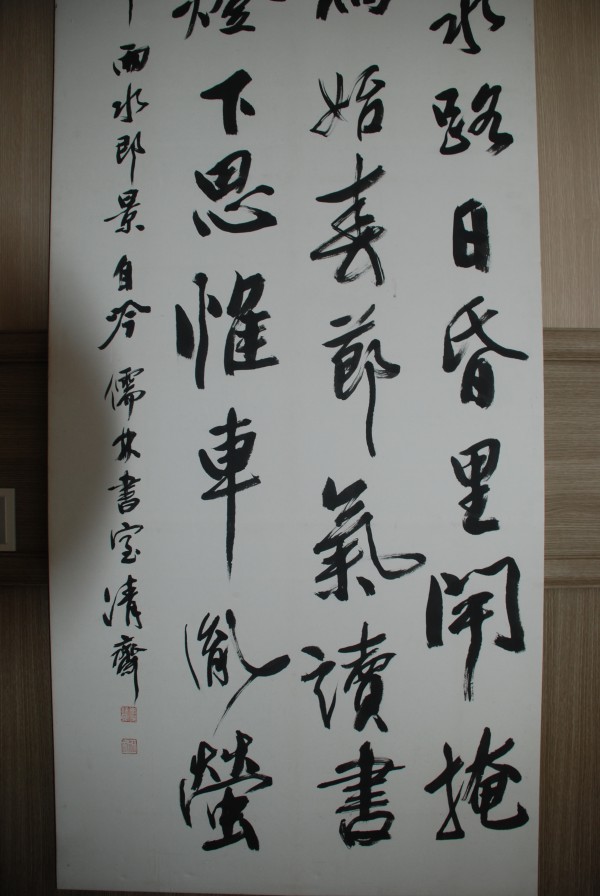 水路日昏里開掩
始春節氣讀書
燈下思惟車胤螢
雨水即景自吟儒林書室清齋